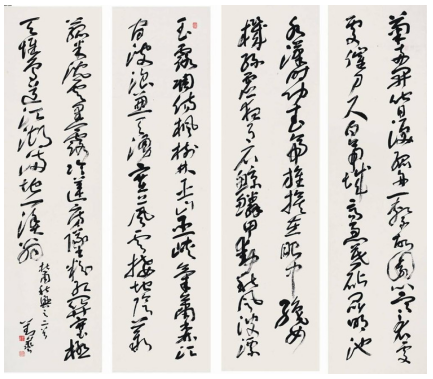 玉露凋傷楓樹林巫山巫峽氣蕭森江
間波浪兼天湧塞上風雲接地陰叢
菊兩開他日淚孤舟一繫故園心寒衣處
處催刀尺白帝城高急暮砧昆明池
水漢時功武帝旌旗在眼中織女
機絲虛夜月石鯨鱗甲動秋風波漂
菰米沈雲黑露冷蓮房墜粉紅關塞極
天惟鳥道江湖滿地一漁翁
杜甫秋興之二首